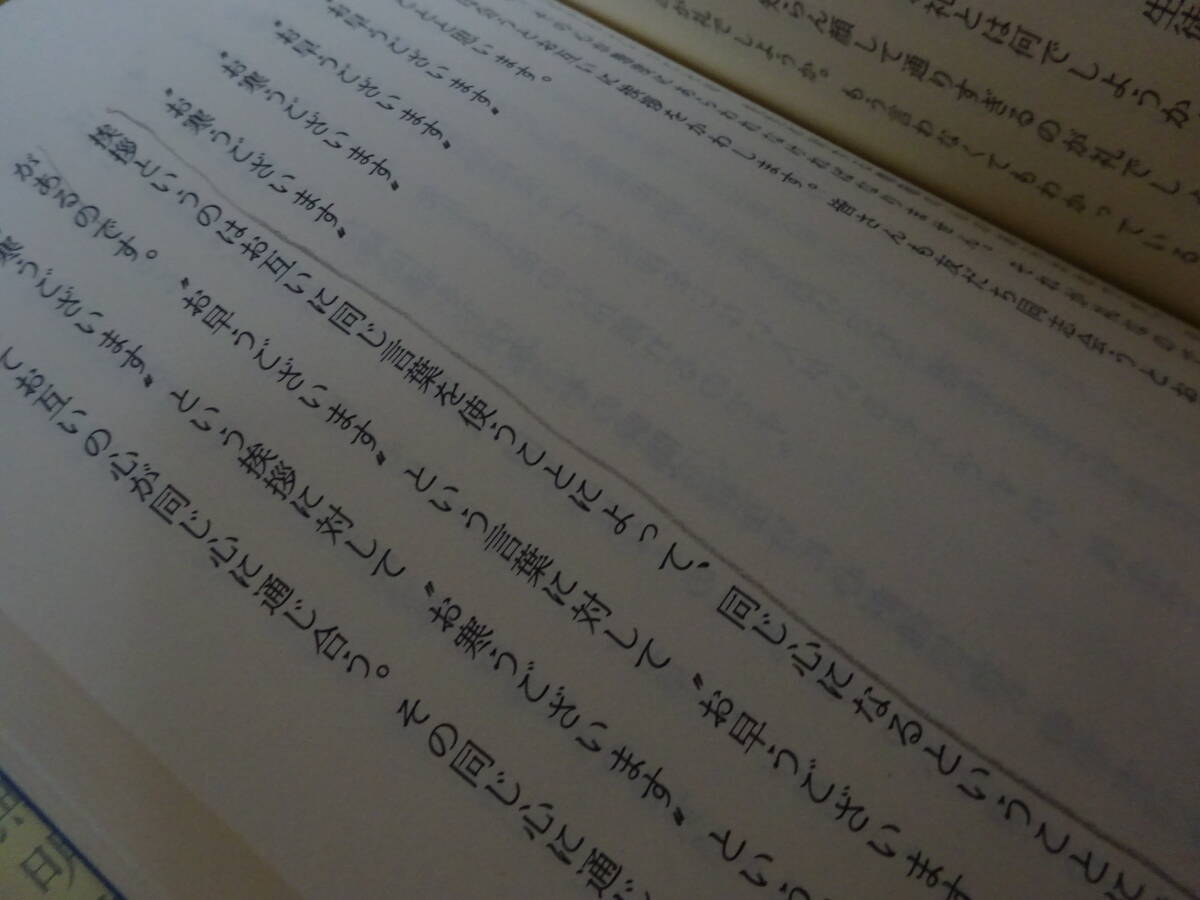 生徒
礼とは何でしようか
知らん顔して通りすぎるのが礼でしょ
が礼でしょうか。もう言わなくてもわかっている
なければなりません。それが礼なのせ
お互いに挨拶をかわします。皆さんも友だち同志会うとお
て思います。
〝お早うございます〟
〝お早うございます〟
〝お寒うございます〟
〝お寒うございます〟
挨拶というのはお互いに同じ言葉を使うことによって、同じ心になるということに
があるのです。〝お早うございます〟という言葉に対して〝お早うございます
寒うございます〟という挨拶に対して〝お寒うございます〟という
てお互いの心が同じ心に通じ合う。その同じ心に通じ
明